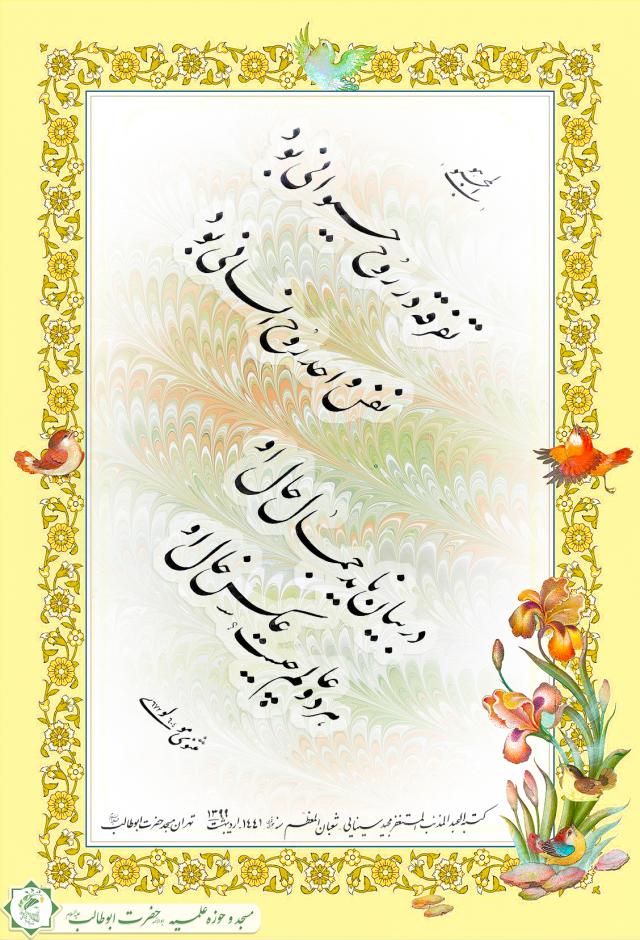 هوالمحبوب
تفرقه در روح حیوانی بود
نفس واحد روح انسانی بود
در بیان ناید جمال حال او
هر دو عالم چیست؟ عکس خال او
مثنوی مولوی
کتبه العبد المذنب المستغفر مجید سینایی شعبان المعظم سنه ۱۴۴۱، اردیبهشت ۱۳۹۹ تهران مسجد حضرت ابوطالب
مسجد و حوزه علمیه حضرت ابوطالب